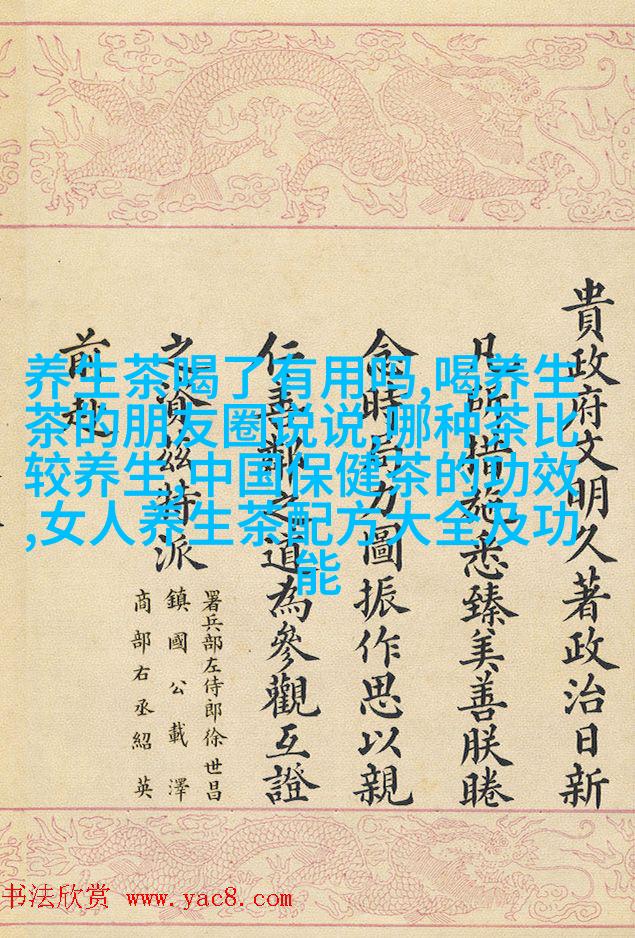 养生茶喝了有用吗,喝养生
茶的朋友圈说说,哪种茶比
较养生,中国保健茶的功效
,女人养生茶配方大全及功
能
貴政府文明久著政治日新
凡所措施悉臻美善朕睠
念時局力圖振作思以親
仁善鄰之道為參觀互證
之資茲特派
署兵部左侍郎徐世昌
鎮國公載澤
商部右丞紹英
前赴
书法欣赏 www.yac8.com